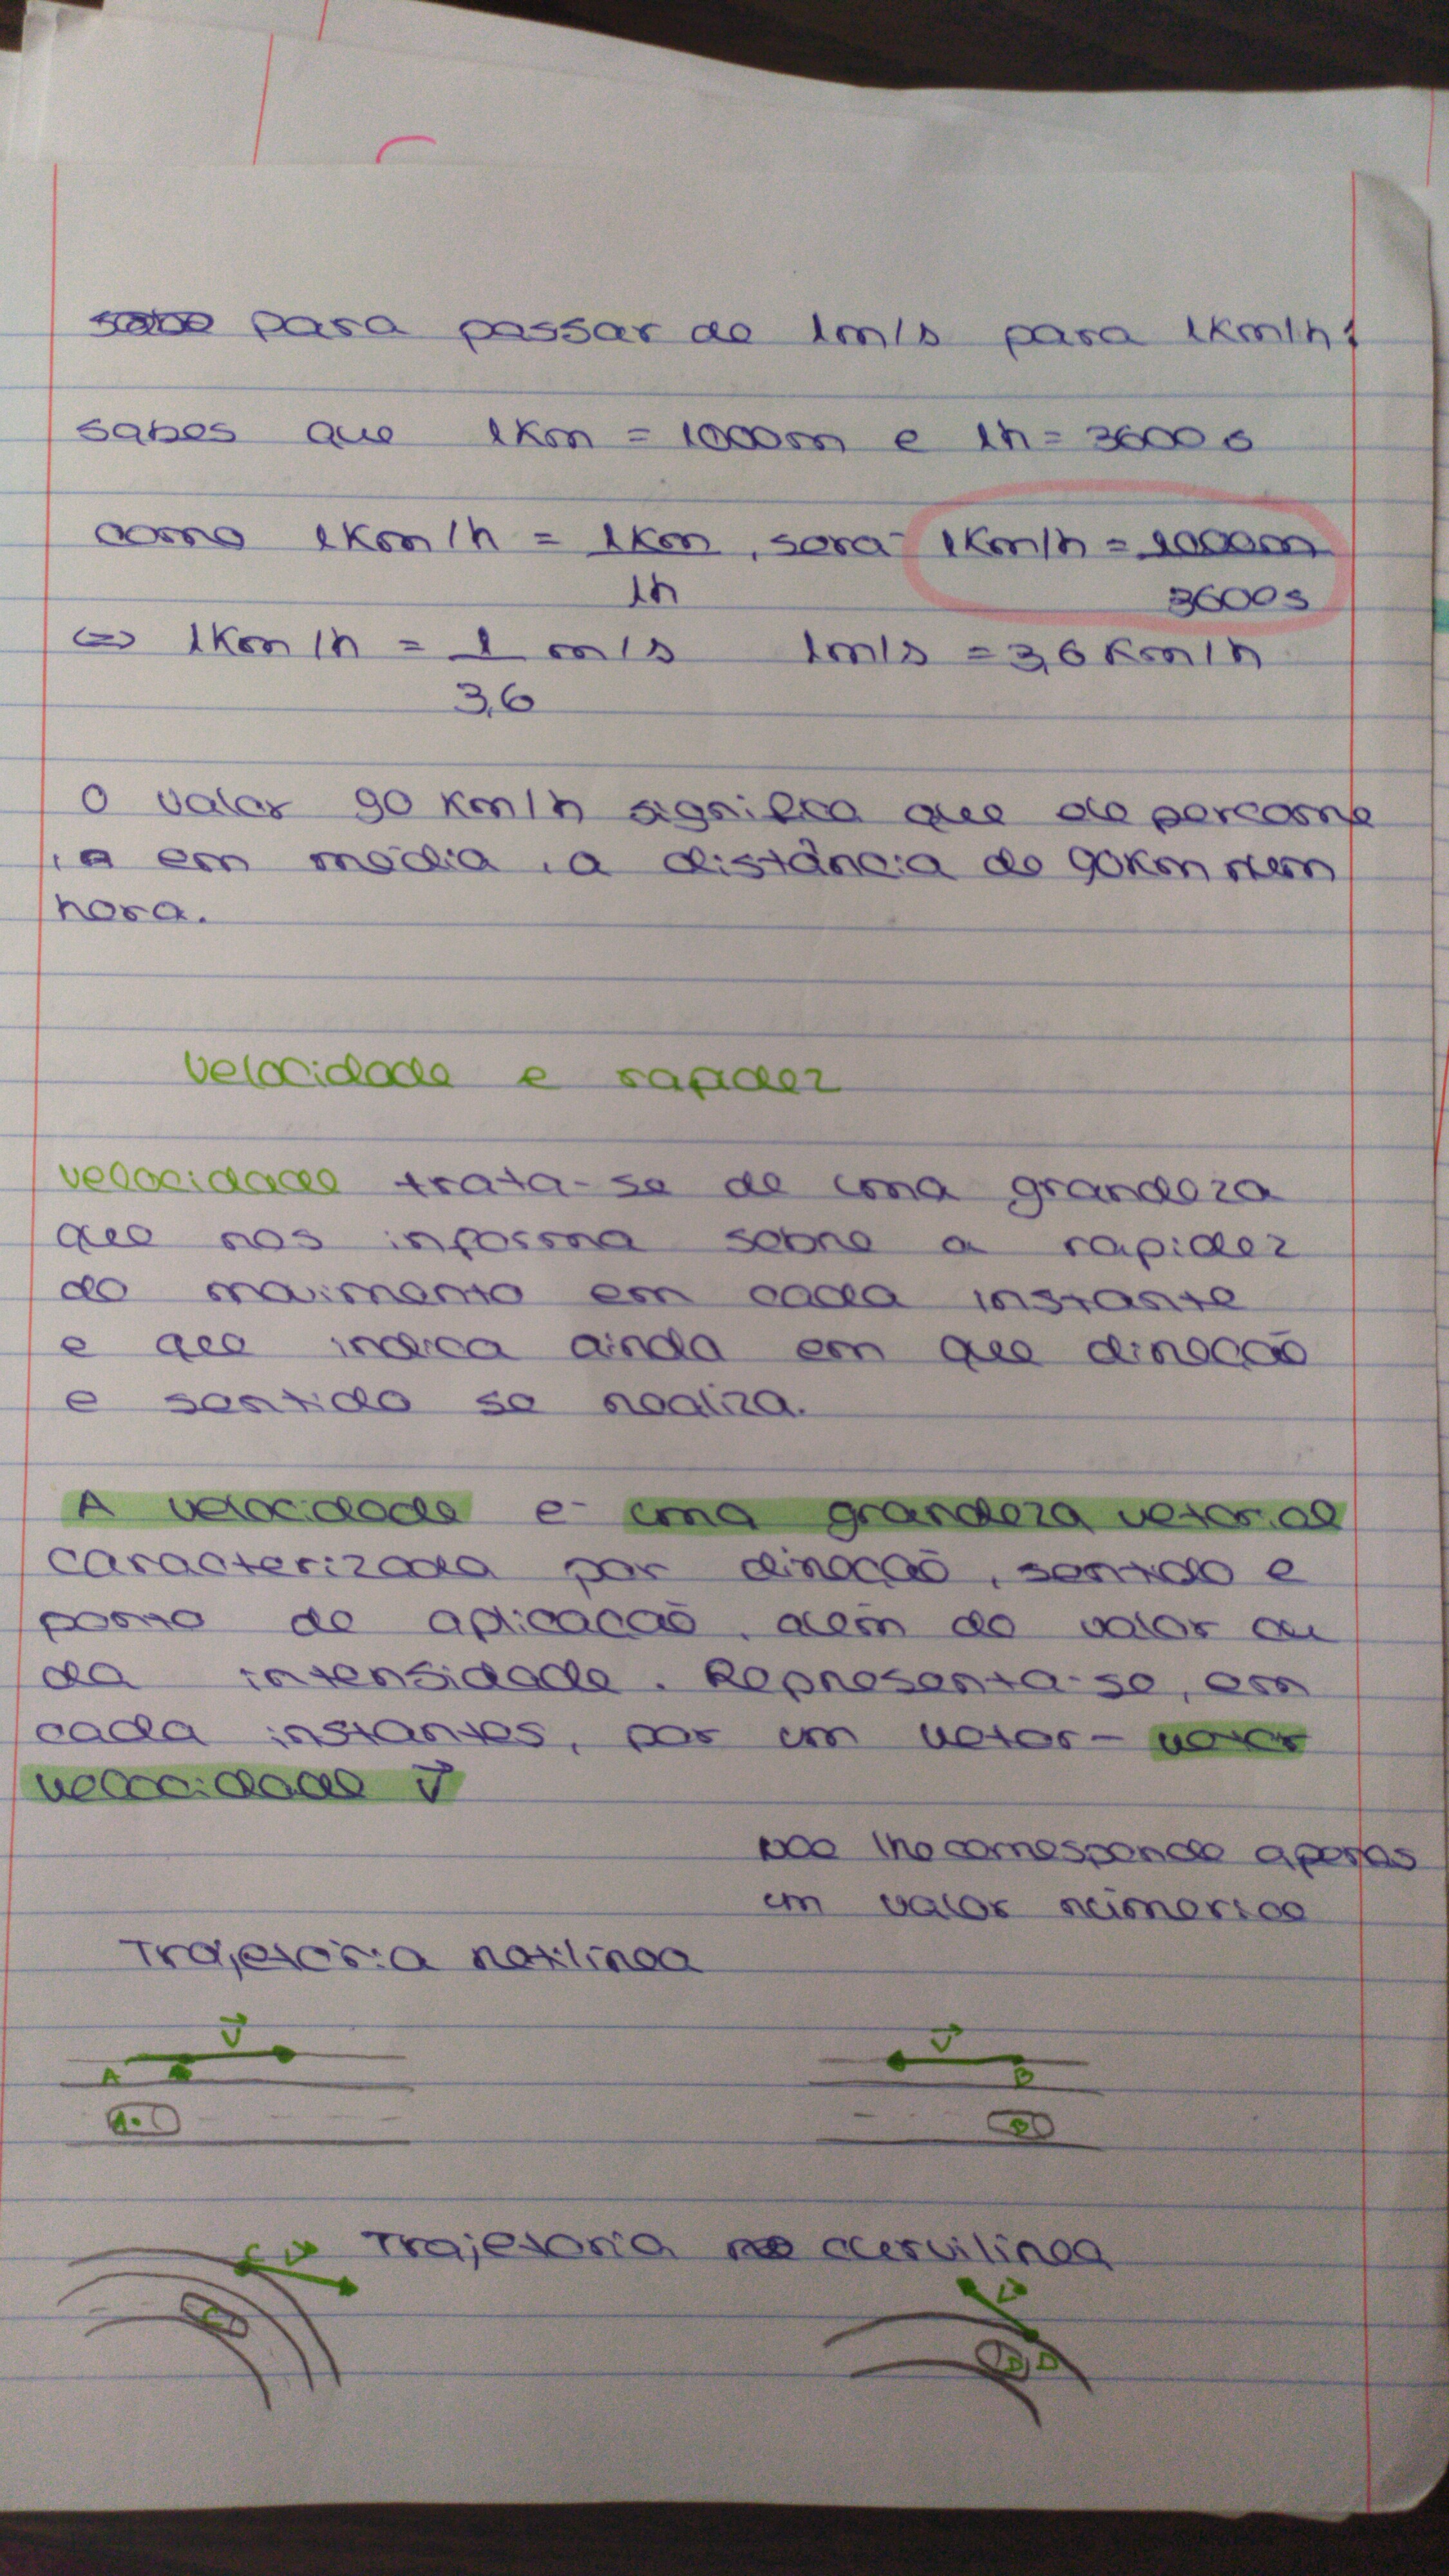 para passar de 1m/s para 1km/h:
sabes que 1Km = 1000m e 1h = 3600 s
como 1Km/h = 1Km , sera 1Km/h = 1000m
1h 3600s
<=> 1Km/h = 1 m/s 1m/s = 3,6 Km/h
3,6
O valor 90 Km/h significa que se percorre
ia em media , a distância de 90Km numa
hora.
Velocidade e rapidez
velocidade trata-se de uma grandeza
que nos informa sobre a rapidez
do movimento em cada instante
e que indica ainda em que direcção
e sentido se realiza.
A velocidade e uma grandeza vetorial
caracterizada por direcção, sentido e
ponto de aplicação, além do valor ou
da intensidade. Representa-se, em
cada instantes, por um vetor - vetor
velocidade v⃗
não lhe corresponde apenas
um valor númerico
Trajetória retilínea
v⃗ v⃗
A B
A B
Trajetoria curvilínea
C v⃗ v⃗
C D D